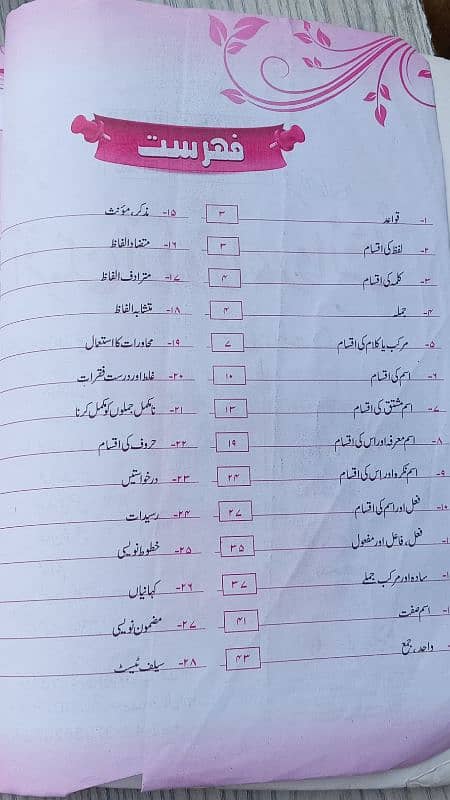 فہرست
۱- قواعد ۳
۲- لفظ کی اقسام ۳
۳- کلمہ کی اقسام ۴
۴- جملہ ۴
۵- مرکب یا کلام کی اقسام ۷
۶- اسم کی اقسام ۱۰
۷- اسم مشتق کی اقسام ۱۳
۸- اسم معرفہ اور اس کی اقسام ۱۹
۹- اسم نکرہ اور اس کی اقسام ۲۴
۱۰- فعل اور اسم کی اقسام ۲۷
فعل، فاعل اور مفعول ۳۵
سادہ اور مرکب جملے ۳۷
اسم صفت ۴۱
واحد، جمع ۴۳
۱۵- مذکر، مؤنث
۱۶- متضاد الفاظ
۱۷- مترادف الفاظ
۱۸- متشابہ الفاظ
۱۹- محاورات کا استعمال
۲۰- غلط اور درست فقرات
۲۱- نامکمل جملوں کو مکمل کرنا
۲۲- حروف کی اقسام
۲۳- درخواستیں
۲۴- رسیدات
۲۵- خطوط نویسی
۲۶- کہانیاں
۲۷- مضمون نویسی
۲۸- سیلف ٹیسٹ